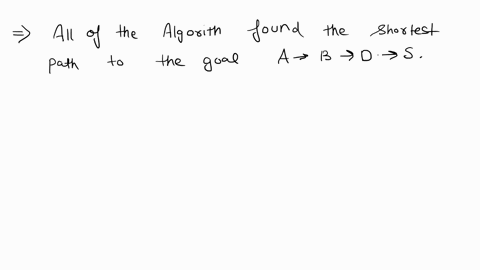 ⇒ All of the Algorith found the shortest
path to the goal A → B → D → S.